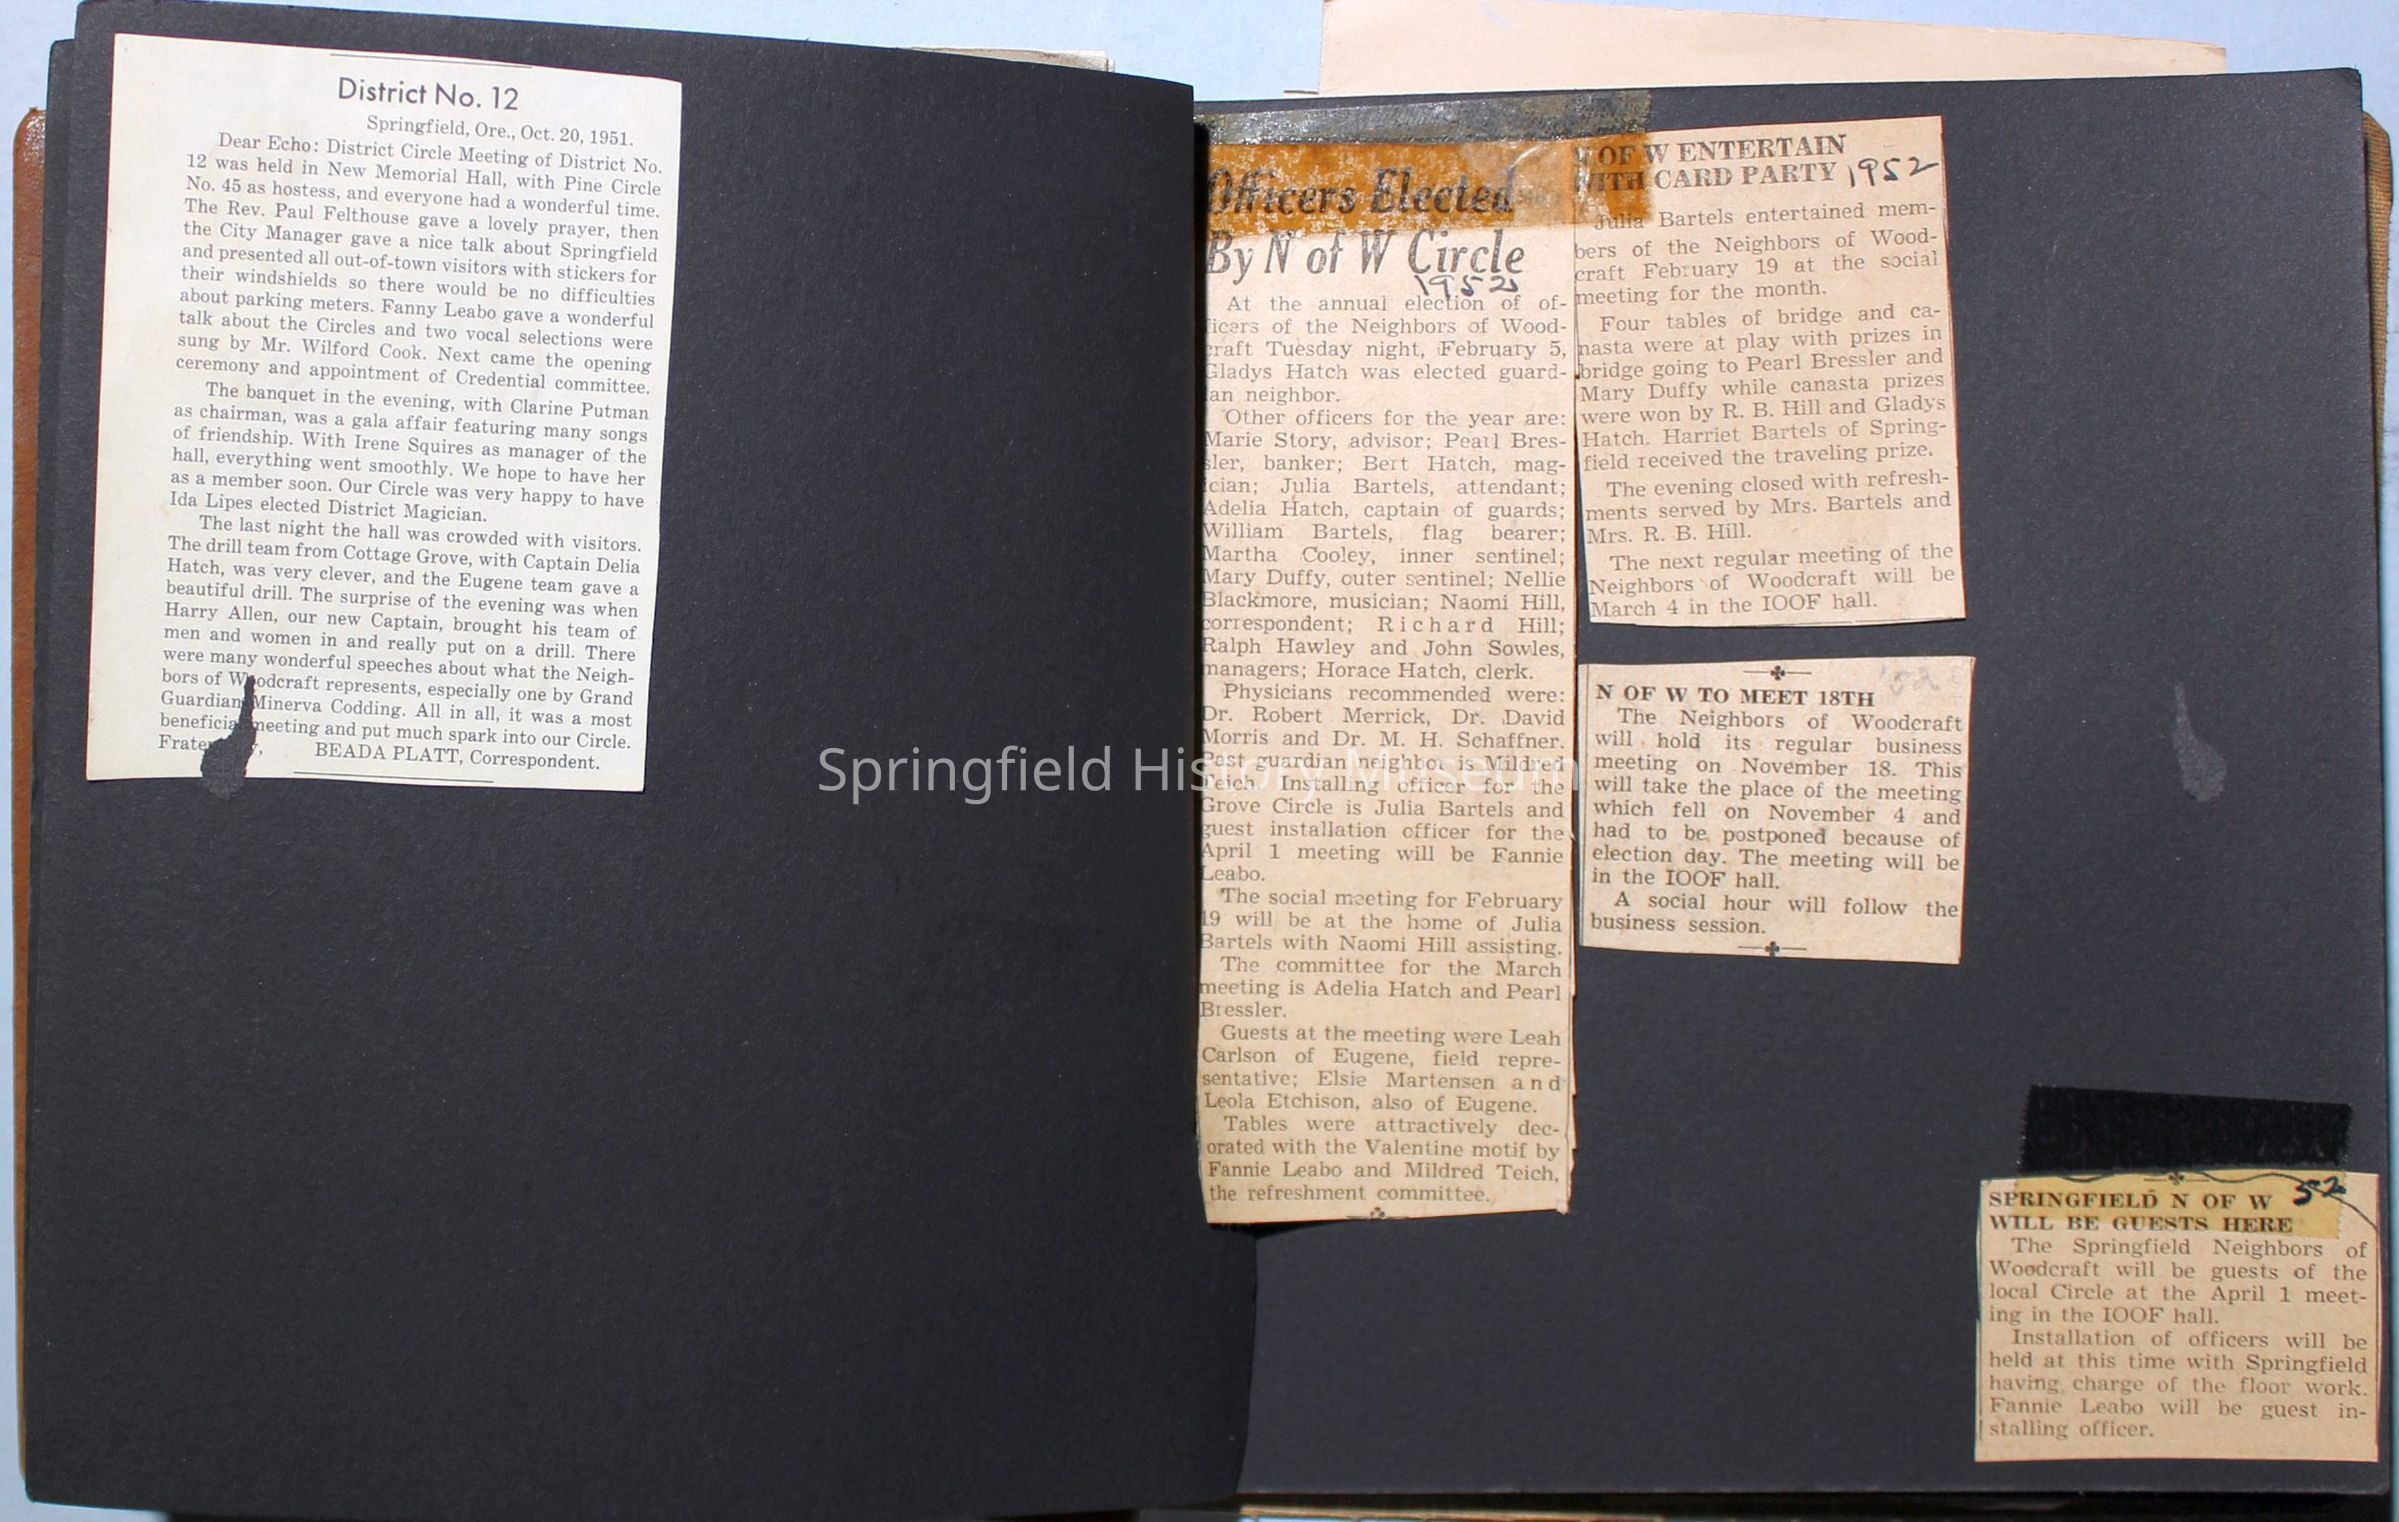 District No. 12
Springfield, Ore., Oct. 20, 1951.
Dear Echo: District Circle Meeting of District No.
12 was held in New Memorial Hall, with Pine Circle
No. 45 as hostess, and everyone had a wonderful time.
The Rev. Paul Felthouse gave a lovely prayer, then
the City Manager gave a nice talk about Springfield
and presented all out-of-town visitors with stickers for
their windshields so there would be no difficulties
about parking meters. Fanny Leabo gave a wonderful
talk about the Circles and two vocal selections were
sung by Mr. Wilford Cook. Next came the opening
ceremony and appointment of Credential committee.
The banquet in the evening, with Clarine Putman
as chairman, was a gala affair featuring many songs
of friendship. With Irene Squires as manager of the
hall, everything went smoothly. We hope to have her
as a member soon. Our Circle was very happy to have
Ida Lipes elected District Magician.
The last night the hall was crowded with visitors.
The drill team from Cottage Grove, with Captain Delia
Hatch, was very clever, and the Eugene team gave a
beautiful drill. The surprise of the evening was when
Harry Allen, our new Captain, brought his team of
men and women in and really put on a drill. There
were many wonderful speeches about what the Neigh-
bors of Woodcraft represents, especially one by Grand
Guardian Minerva Codding. All in all, it was a most
beneficial meeting and put much spark into our Circle.
BEADA PLATT, Correspondent.
Officers Elected
By N of W Circle
1952
At the annual election of of-
ficers of the Neighbors of Wood-
craft Tuesday night, February 5,
Gladys Hatch was elected guard-
ian neighbor.
Other officers for the year are:
Marie Story, advisor; Pearl Bres-
sler, banker; Bert Hatch, mag-
ician; Julia Bartels, attendant;
Adelia Hatch, captain of guards;
William Bartels, flag bearer;
Martha Cooley, inner sentinel;
Mary Duffy, outer sentinel; Nellie
Blackmore, musician; Naomi Hill,
correspondent; Richard Hill;
Ralph Hawley and John Sowles,
managers; Horace Hatch, clerk.
Physicians recommended were:
Dr. Robert Merrick, Dr. David
Morris and Dr. M. H. Schaffner.
Past guardian neighbor is Mildred
Teich. Installing officer for the
Grove Circle is Julia Bartels and
guest installation officer for the
April 1 meeting will be Fannie
Leabo.
The social meeting for February
19 will be at the home of Julia
Bartels with Naomi Hill assisting.
The committee for the March
meeting is Adelia Hatch and Pearl
Bressler.
Guests at the meeting were Leah
Carlson of Eugene, field repre-
sentative; Elsie Martensen and
Leola Etchison, also of Eugene.
Tables were attractively dec-
orated with the Valentine motif by
Fannie Leabo and Mildred Teich,
the refreshment committee.
N OF W ENTERTAIN
WITH CARD PARTY 1952
Julia Bartels entertained mem-
bers of the Neighbors of Wood-
craft February 19 at the social
meeting for the month.
Four tables of bridge and ca-
nasta were at play with prizes in
bridge going to Pearl Bressler and
Mary Duffy while canasta prizes
were won by R. B. Hill and Gladys
Hatch. Harriet Bartels of Spring-
field received the traveling prize.
The evening closed with refresh-
ments served by Mrs. Bartels and
Mrs. R. B. Hill.
The next regular meeting of the
Neighbors of Woodcraft will be
March 4 in the IOOF hall.
'52
N OF W TO MEET 18TH
The Neighbors of Woodcraft
will hold its regular business
meeting on November 18. This
will take the place of the meeting
which fell on November 4 and
had to be postponed because of
election day. The meeting will be
in the IOOF hall.
A social hour will follow the
business session.
SPRINGFIELD N OF W 52
WILL BE GUESTS HERE
The Springfield Neighbors of
Woodcraft will be guests of the
local Circle at the April 1 meet-
ing in the IOOF hall.
Installation of officers will be
held at this time with Springfield
having charge of the floor work.
Fannie Leabo will be guest in-
stalling officer.
Springfield History Museum